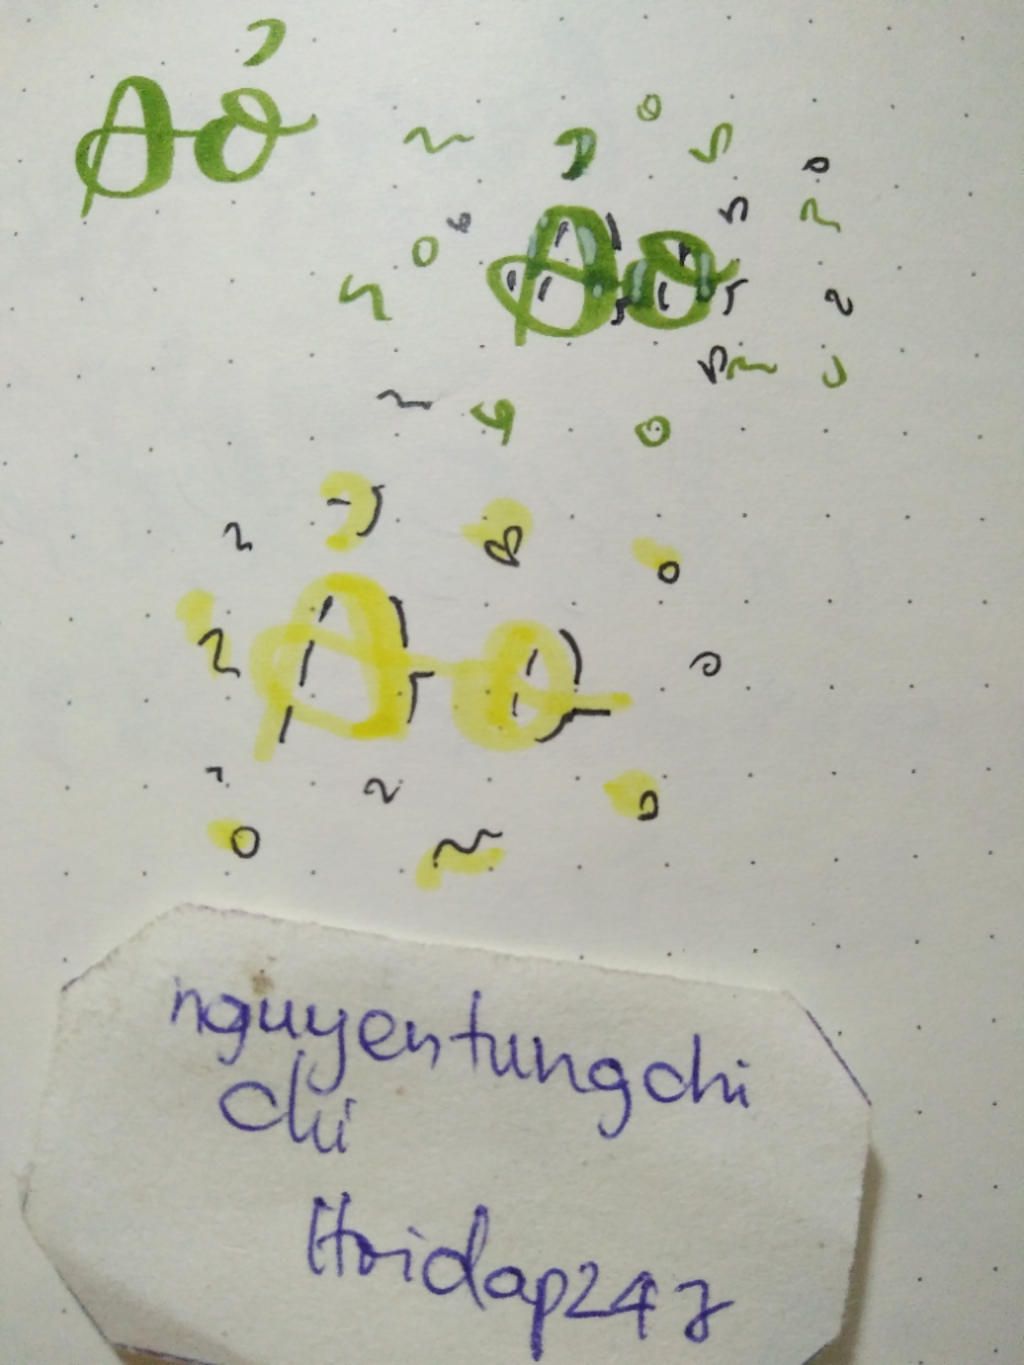 Aỏ
Ao
Ao
nguyentungchi
chi
Hoidap247